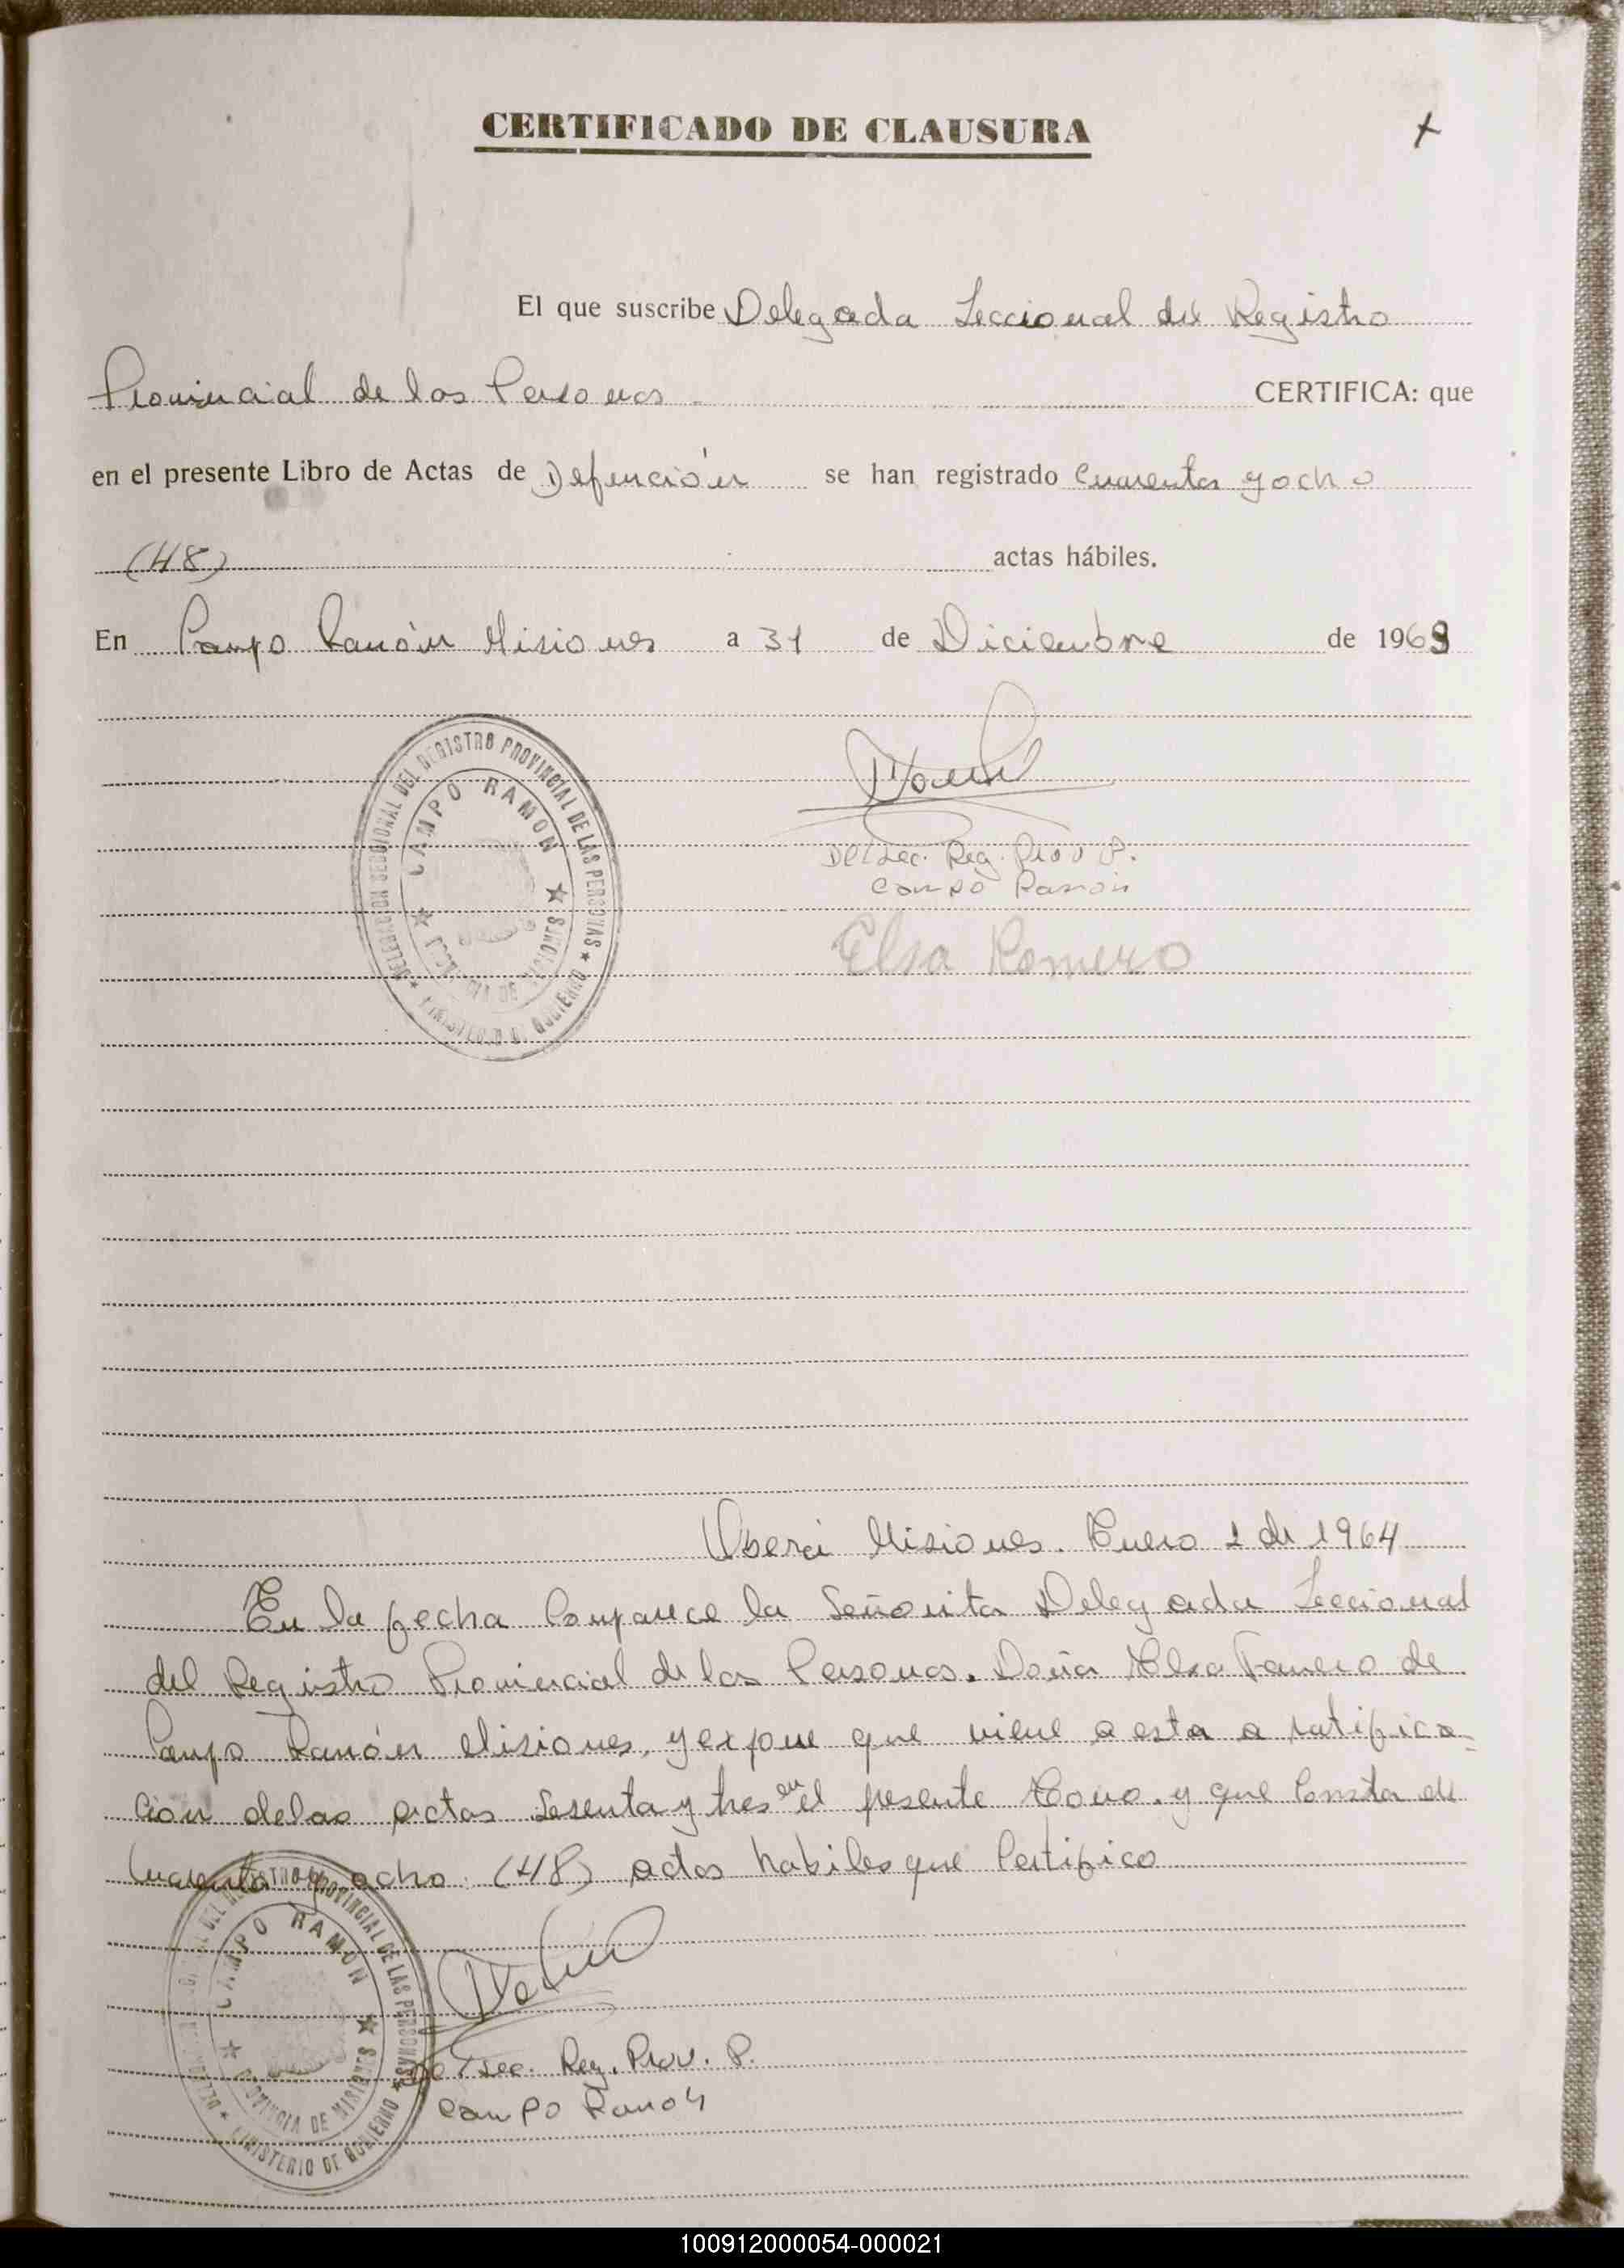 CERTIFICADO DE CLAUSURA
+
El que suscribe Delegada Seccional del Registro
Provincial de las Personas CERTIFICA: que
en el presente Libro de Actas de Defunción se han registrado Cuarenta y ocho
(48) actas hábiles.
En Campo Ramón Misiones a 31 de Diciembre de 1963
DELEGACION SECCIONAL DEL REGISTRO PROVINCIAL DE LAS PERSONAS ★ MINISTERIO DE GOBIERNO ★
CAMPO RAMON ★ PROVINCIA DE MISIONES ★
Del Sec. Reg. Prov P.
Campo Ramón
Elsa Romero
Oberá Misiones. Enero 2 de 1964
En la fecha Comparece la Señorita Delegada Seccional
del Registro Provincial de las Personas. Doña Elsa de
Campo Ramón Misiones, y expone que viene a esta a ratifica-
ción de las actas sesenta y tres en el presente y que Consta de
Cuarenta y ocho (48) actas habiles que Certifico
DELEGACION SECCIONAL DEL REGISTRO PROVINCIAL DE LAS PERSONAS ★ MINISTERIO DE GOBIERNO ★
CAMPO RAMON ★ PROVINCIA DE MISIONES ★
Del Sec. Reg. Prov. P.
Campo Ramon
100912000054-000021